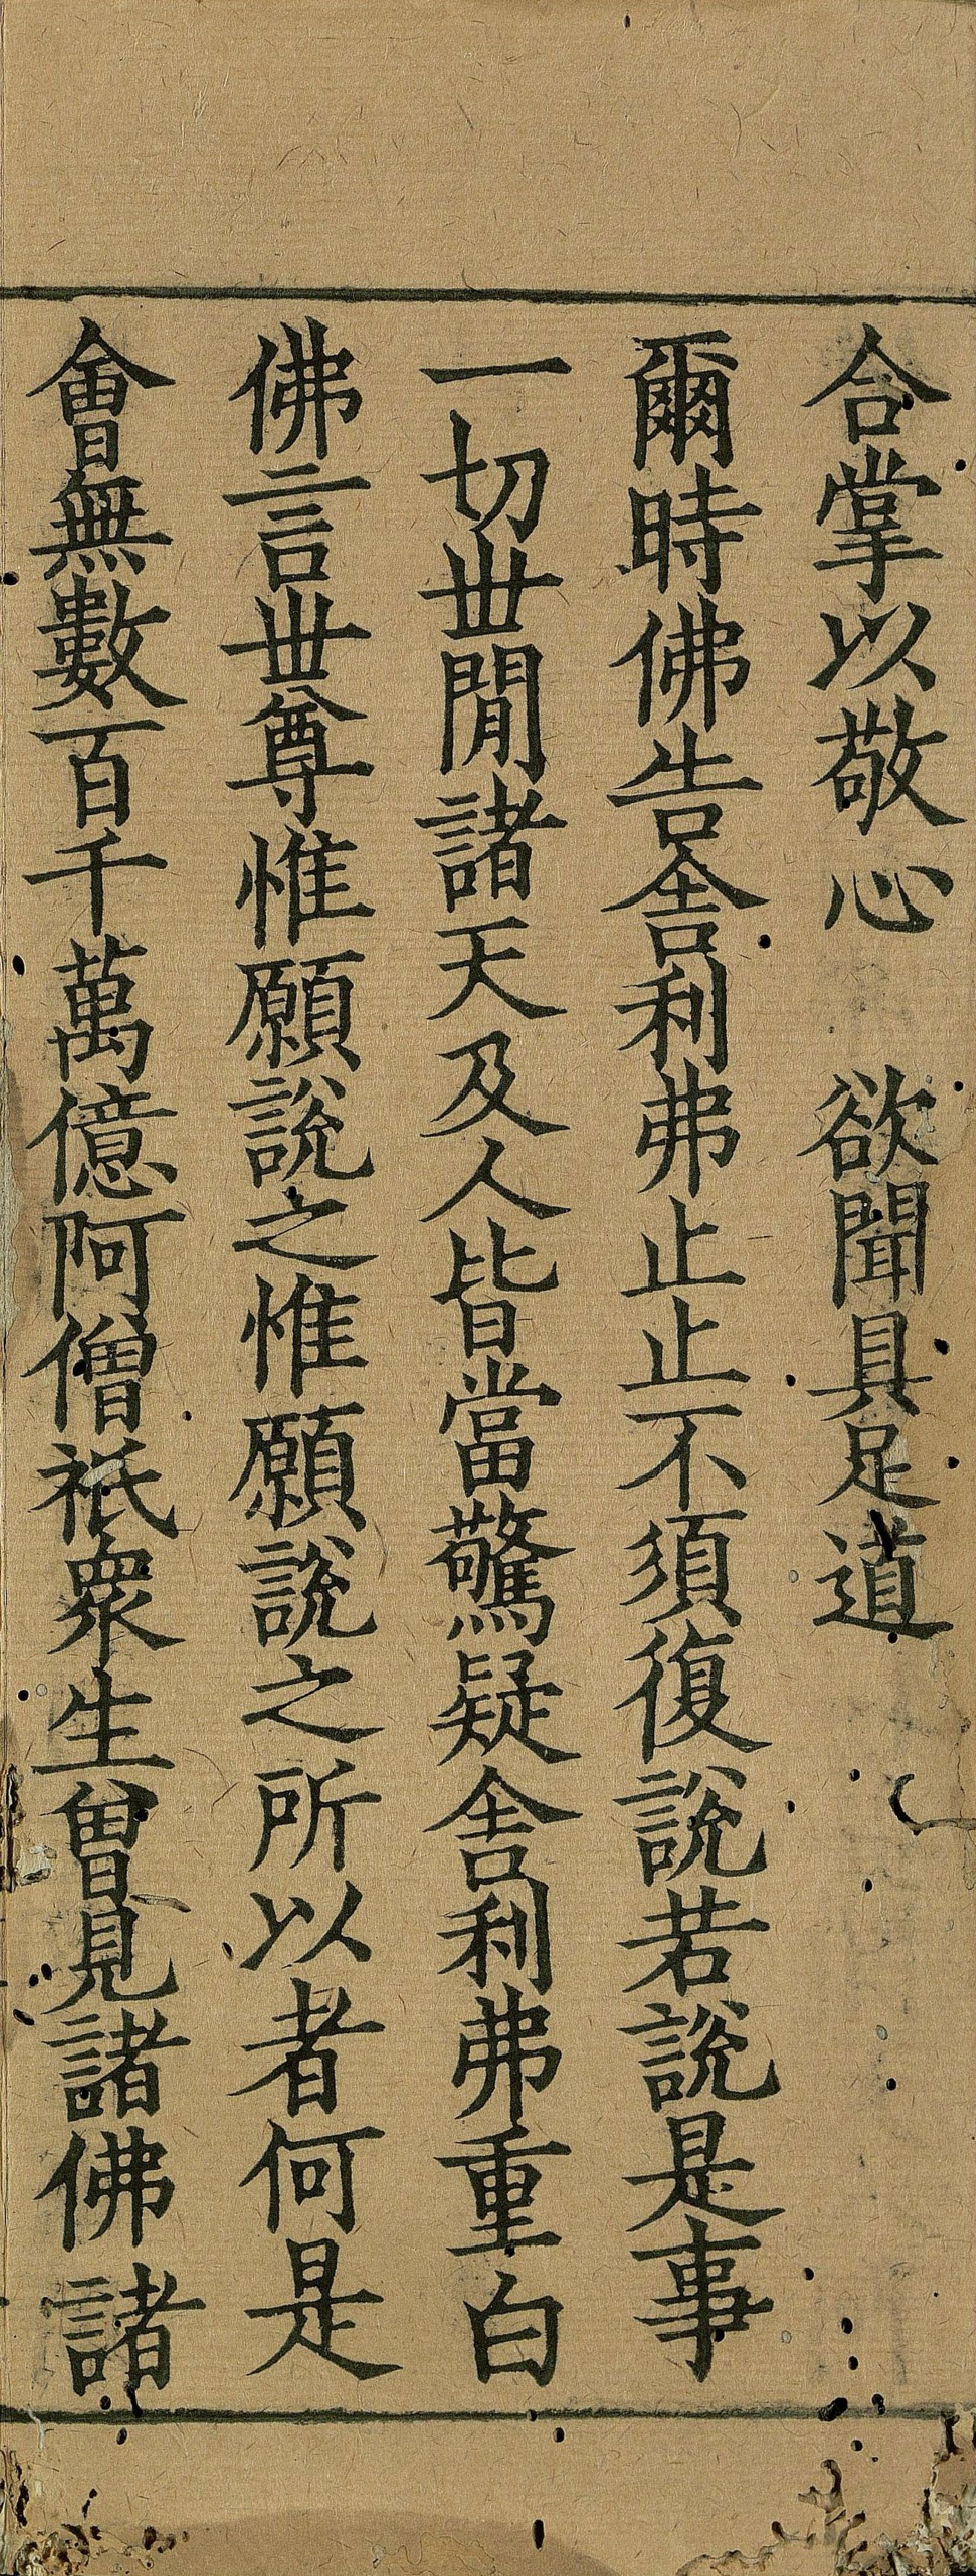 合掌以敬心　欲聞具足道
爾時佛告舎利弗止止不須復說若說是事
一切世閒諸天及人皆當驚疑舎利弗重白
佛言世尊惟願說之惟願說之所以者何是
會無數百千萬億阿僧祇衆生曾見諸佛諸